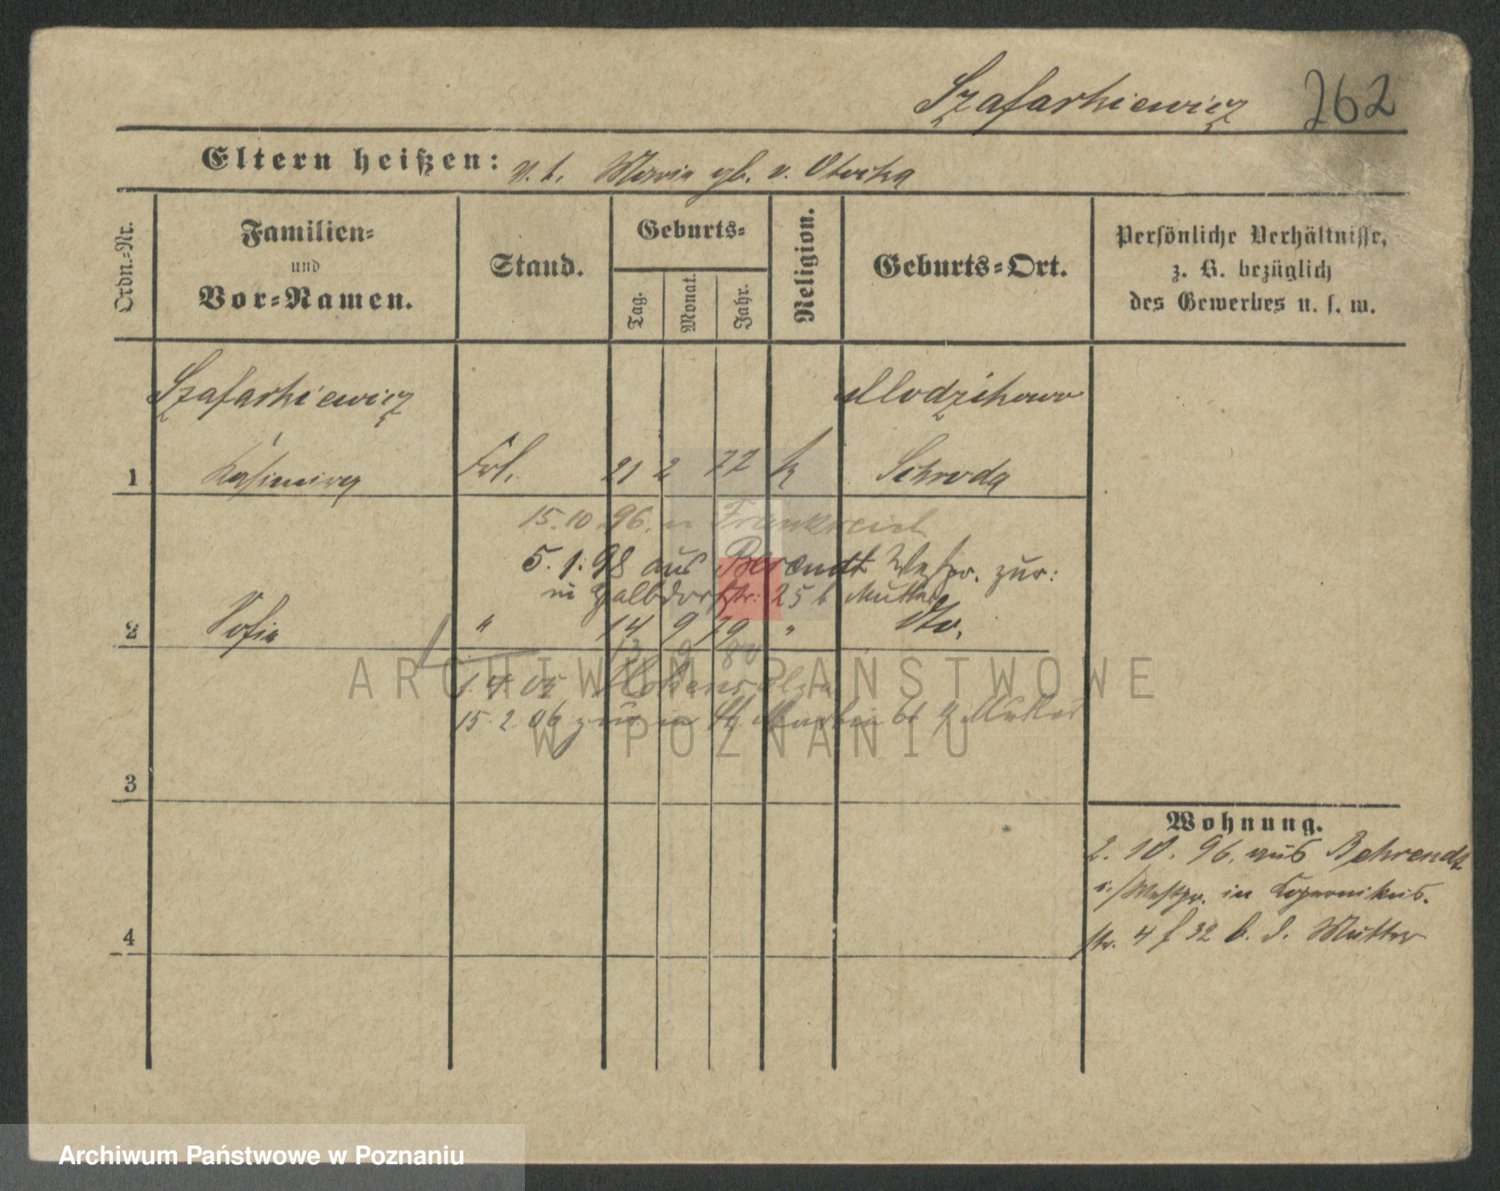 Szafarkiewicz 262
Eltern heißen: v. t. Maria gb. v.
Ordn.-Nr.
Familien-
und
Vor-Namen.
Stand.
Geburts-
Tag.
Monat.
Jahr.
Religion.
Geburts-Ort.
Persönliche Verhältnisse,
z. B. bezüglich
des Gewerbes u. s. w.
Szafarkiewicz Mlodzikowo
1 Kasimira Frl. 21 2 77 k Schroda
15.10.96. n Frankreich
5.1.98 aus Berendt Westpr. zur:
in Halbdorfstr: 25 b Mutter
2 Sofia " 14 9 79 " dto.
13 9 80
1.4.05 Hohensalza
15.2.06 zur. in St. Martin 61 Mutter
3
4
Wohnung.
2. 10. 96. aus Behrendt
i./Westpr. in Kopernikus-
str. 4 f 32 b. d. Mutter
ARCHIWUM PAŃSTWOWE
W POZNANIU
Archiwum Państwowe w Poznaniu